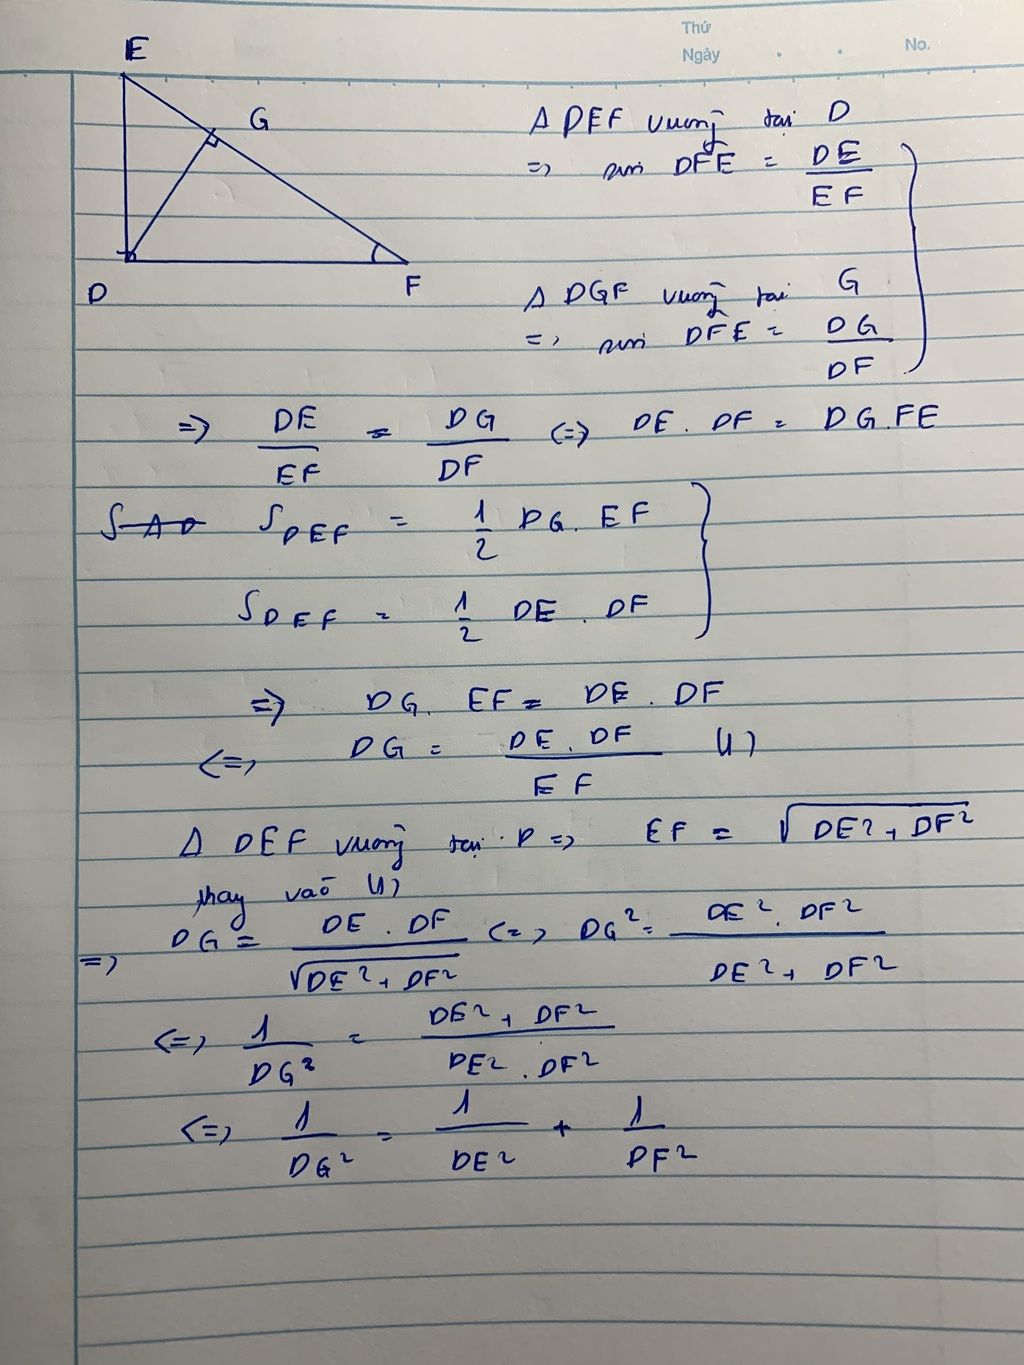 Thứ
Ngày . . No.
E
G
D
F
Δ DEF vuông tại D
=> sin DFE = DE / EF
Δ DGF vuông tại G
=> sin DFE = DG / DF
=> DE / EF = DG / DF <=> DE . DF = DG . FE
S_DEF = 1/2 DG . EF
S_DEF = 1/2 DE . DF
=> DG . EF = DE . DF
<=> DG = DE . DF / EF (1)
Δ DEF vuông tại D => EF = √(DE² + DF²)
thay vào (1)
=> DG = DE . DF / √(DE² + DF²) <=> DG² = DE² . DF² / DE² + DF²
<=> 1 / DG² = DE² + DF² / DE² . DF²
<=> 1 / DG² = 1 / DE² + 1 / DF²